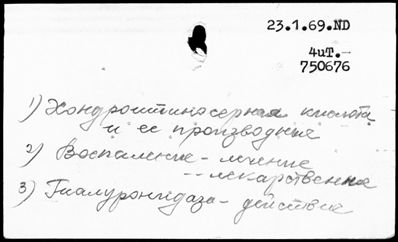 23.1.69.ND
4иТ.-
750676
1) Хондроитиносерная кислота
и ее производные
2) Воспаление - лечение
-- лекарственное
3) Гиалуронидаза - действие